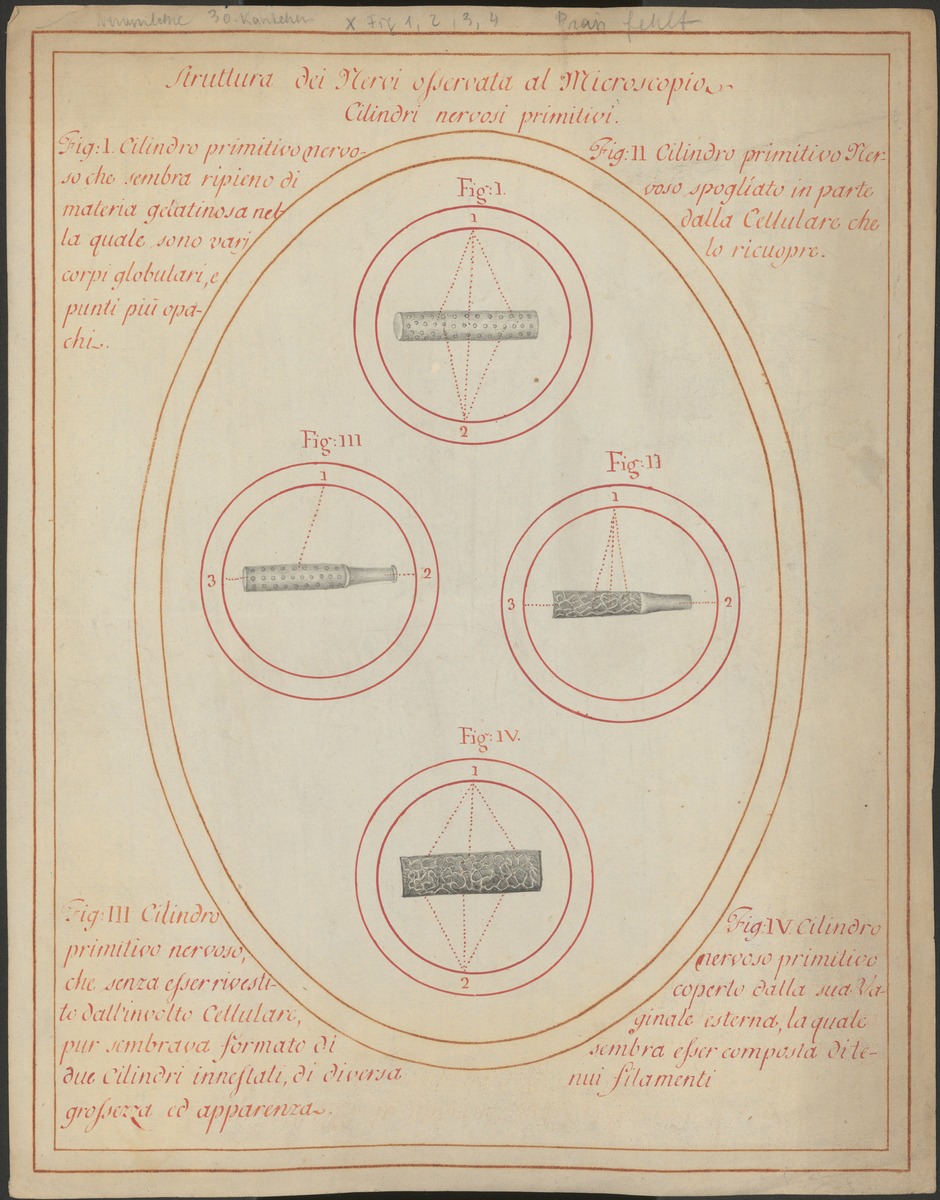 30. Kästchen x Fig 1, 2, 3, 4 Präp fehlt
Struttura dei Nervi oſservata al Microscopio
Cilindri nervosi primitivi.
Fig: I. Cilindro primitivo nervo-
so che sembra ripieno di
materia gelatinosa nel
la quale sono varj
corpi globulari, e
punti più opa-
chi.
Fig: II Cilindro primitivo Ner-
voso spogliato in parte
dalla Cellulare che
lo ricuopre.
Fig: I.
1
2
Fig: III
1
3
2
Fig: II
1
3
2
Fig: IV.
1
2
Fig: III Cilindro
primitivo nervoso,
che senza eſser rivesti-
to dall'involto Cellulare,
pur sembrava formato di
due Cilindri inneſtati, di diversa
groſsezza ed apparenza.
Fig: IV. Cilindro
nervoso primitivo
coperto dalla sua Va-
ginale esterna, la quale
sembra eſser composta di te-
nui filamenti